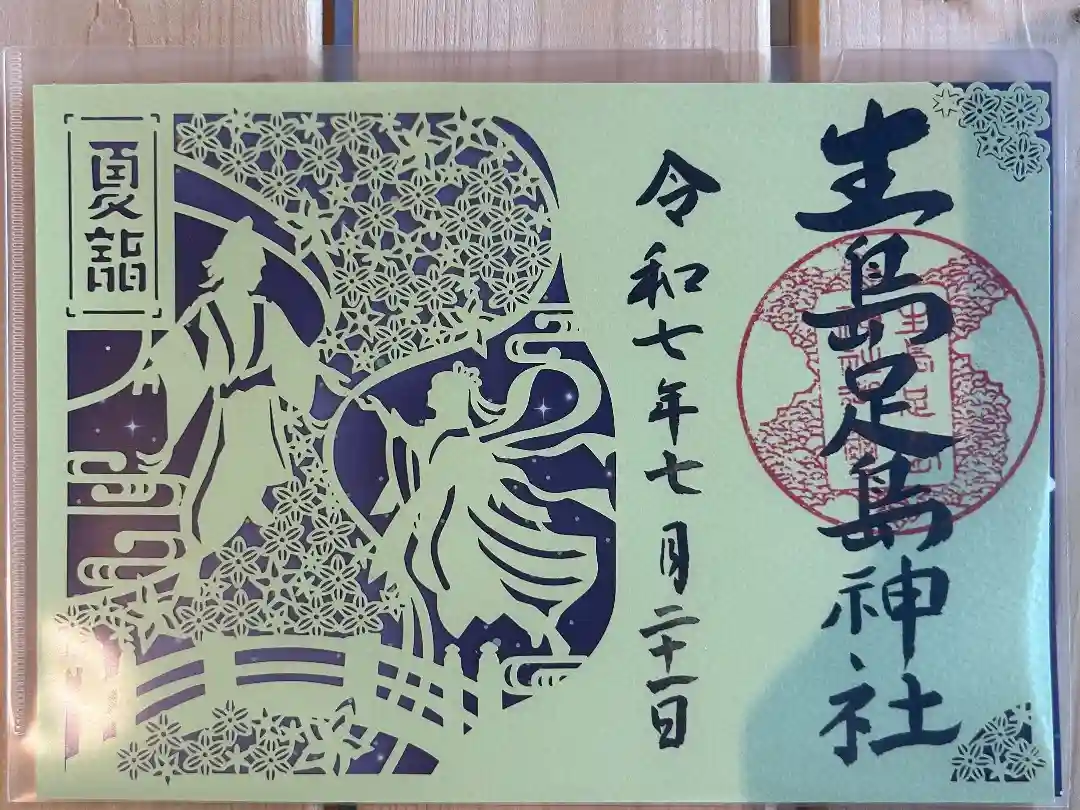 生島足島神社
令和七年七月二十一日
夏詣